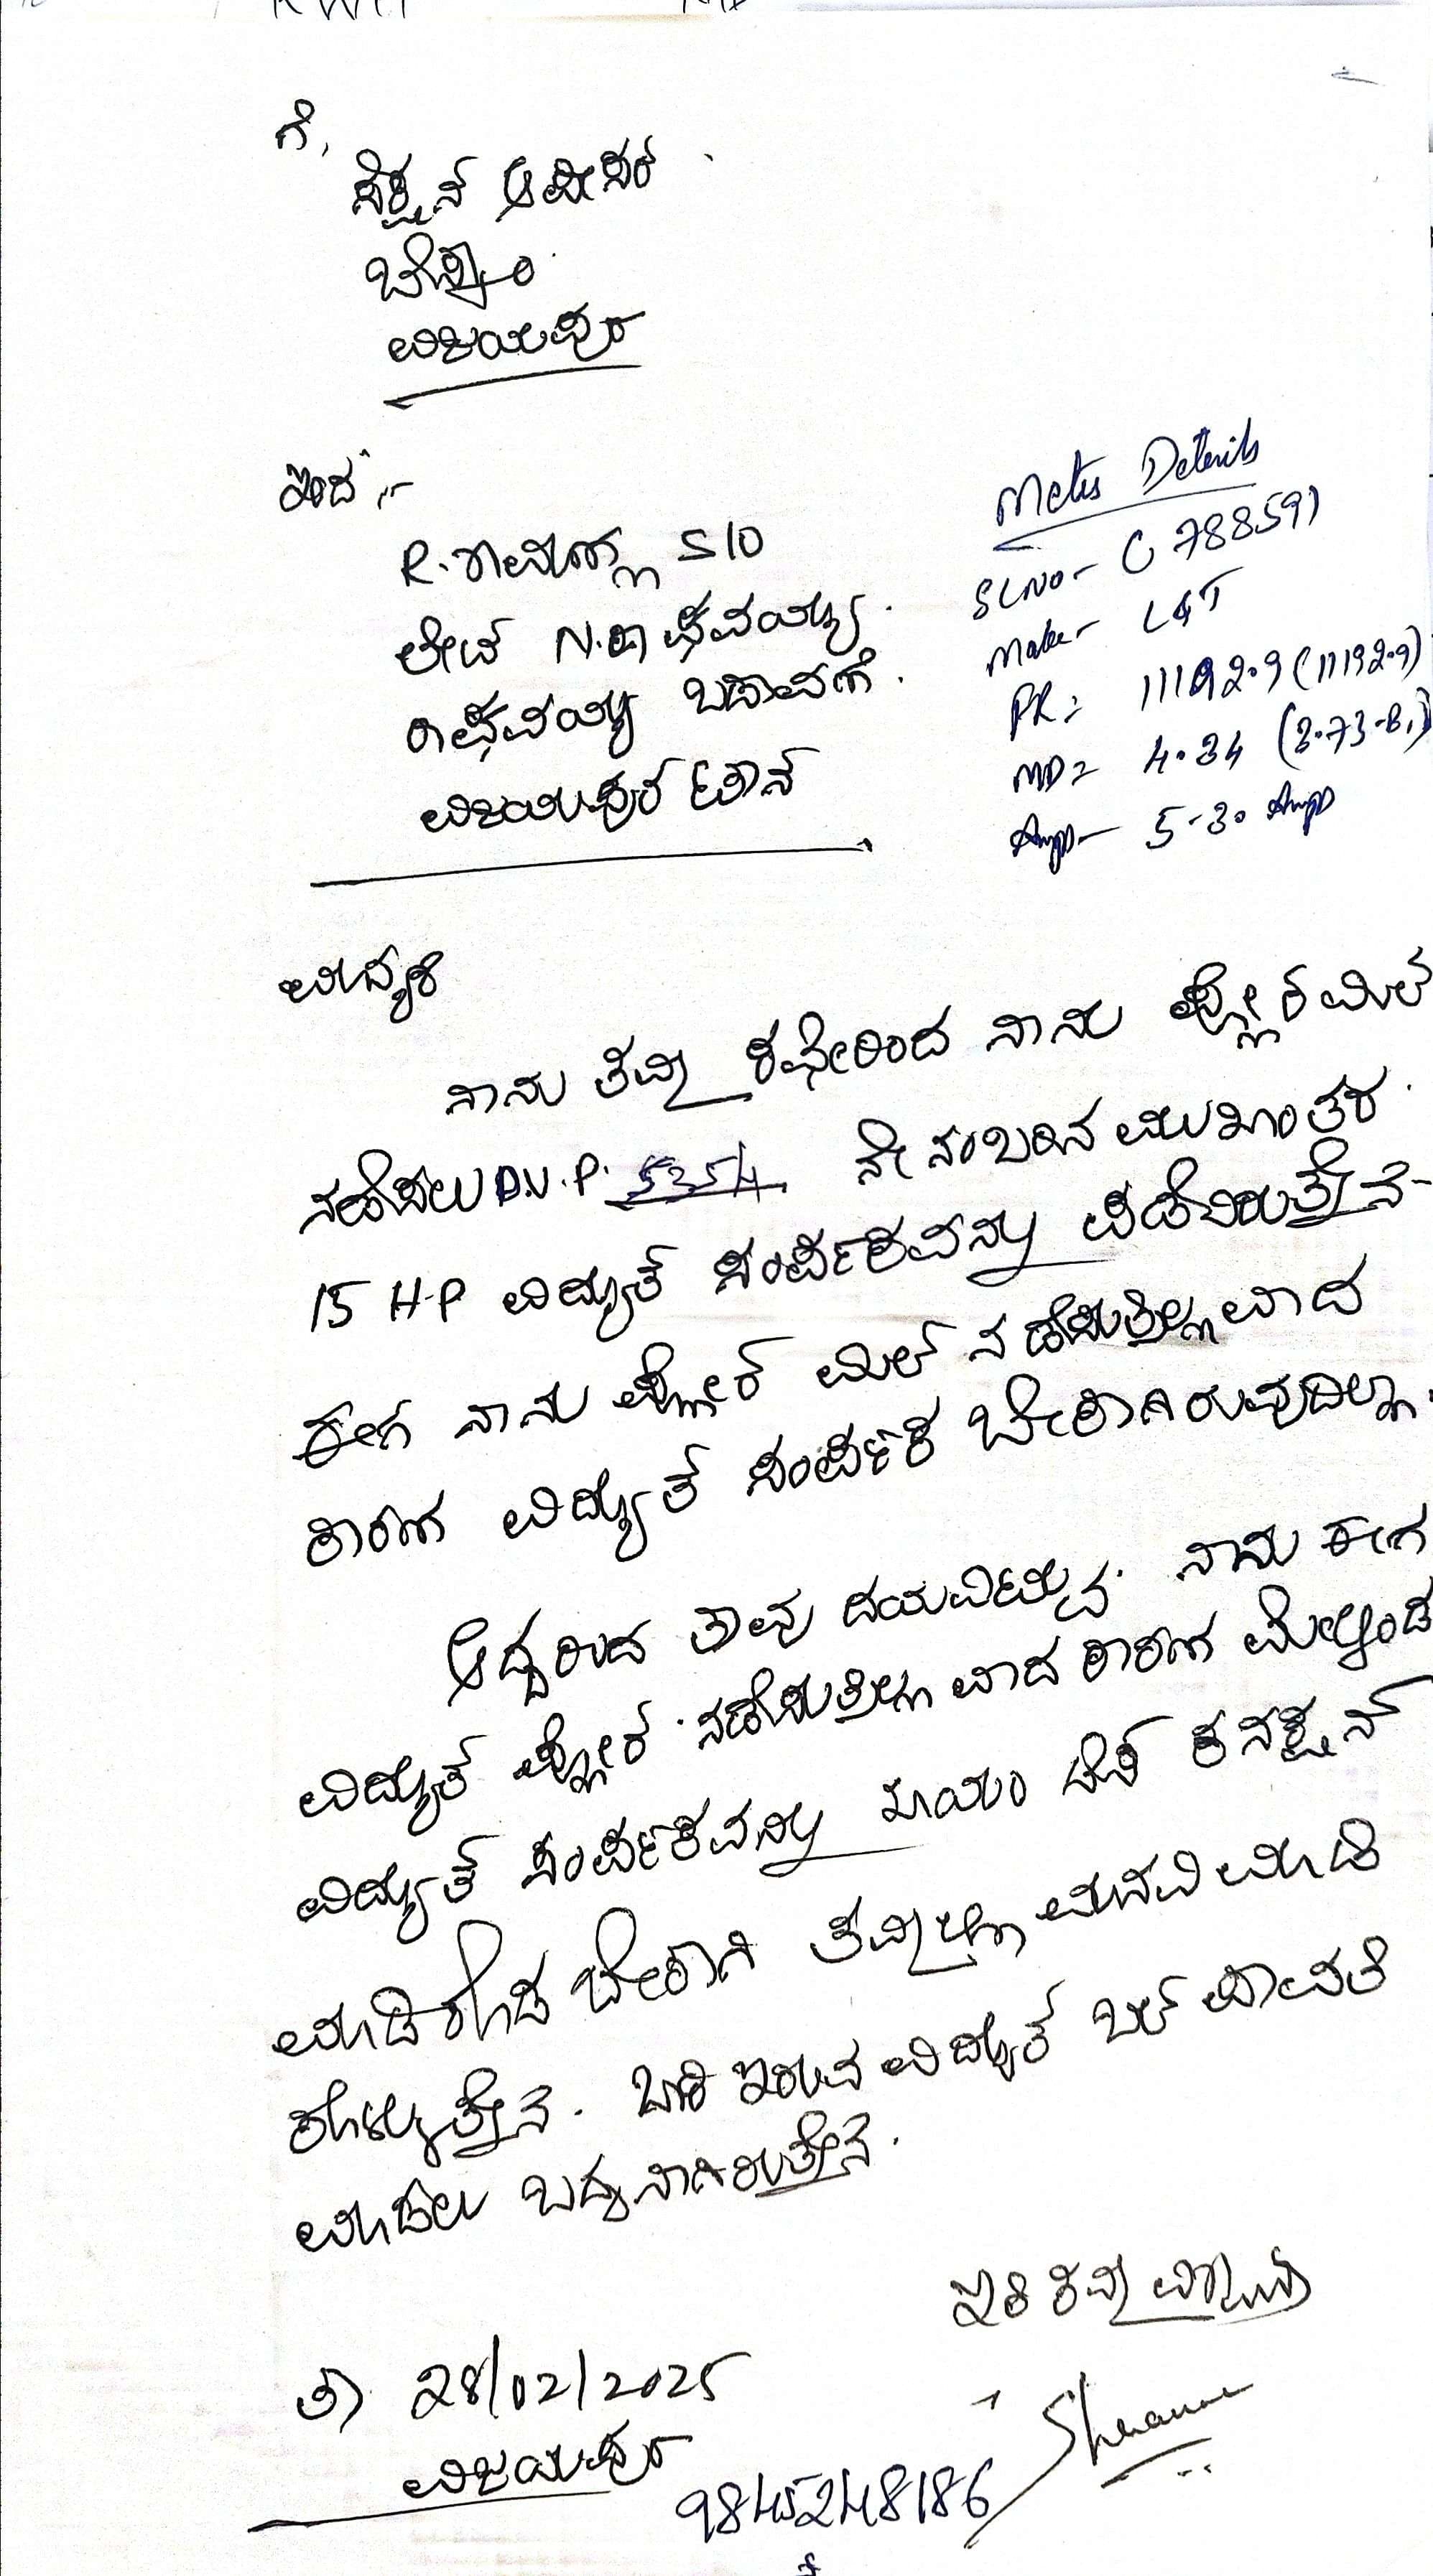 ಗೆ,
ಸೆಕ್ಷನ್ ಆಫೀಸರ್
ಬೆಸ್ಕಾಂ
ವಿಜಯಪುರ
ಇಂದ :-
R. S/O
ಲೇಟ್ N. ರಾಘವಯ್ಯ
ರಾಘವಯ್ಯ ಬಡಾವಣೆ.
ವಿಜಯಪುರ ಟೌನ್
Meter Details
SLNO - C 788591
Make - L&T
PR = 111192.9 (11192.9)
MD = 4.34
Amp - 5-30 Amp
ಮಾನ್ಯರೆ
ನಾನು ತಮ್ಮ ಕಛೇರಿಂದ ನಾನು ಪ್ಲೋರ್ ಮಿಲ್
ನಡೆಸಲು D.V.P. 5354 ನೇ ನಂಬರಿನ ಮುಖಾಂತರ
15 H.P ವಿದ್ಯುತ್ ಸಂರ್ಪಕವನ್ನು ಪಡೆದಿರುತ್ತೇನೆ-
ಈಗ ನಾನು ಪ್ಲೋರ್ ಮಿಲ್ ನಡೆಸುತ್ತಿಲ್ಲವಾದ
ಕಾರಣ ವಿದ್ಯುತ್ ಸಂರ್ಪಕ ಬೇಕಾಗಿರುವುದಿಲ್ಲಾ.
ಆದ್ದರಿಂದ ತಾವು ದಯವಿಟ್ಟು. ನಾನು ಈಗ
ವಿದ್ಯುತ್ ಪ್ಲೋರ್ ನಡೆಸುತ್ತಿಲ್ಲವಾದ ಕಾರಣ ಮೇಲ್ಕಂಡ
ವಿದ್ಯುತ್ ಸಂರ್ಪಕವನ್ನು ಖಾಯಂ ಕನಕ್ಷನ್
ಮಾಡಿಕೊಡ ಬೇಕಾಗಿ ತಮ್ಮಲ್ಲಿ ಮನವಿ ಮಾಡಿ
ಕೊಳ್ಳುತ್ತೇನೆ. ಬಾಕಿ ಇರುವ ವಿದ್ಯುತ್ ಬಿಲ್ ಪಾವತಿ
ಮಾಡಲು ಬದ್ಧನಾಗಿರುತ್ತೇನೆ.
ಇತಿ ತಮ್ಮ ವಿಶ್ವಾಸಿ
ತಾ) 28/02/2025
ವಿಜಯಪುರ
9845248186